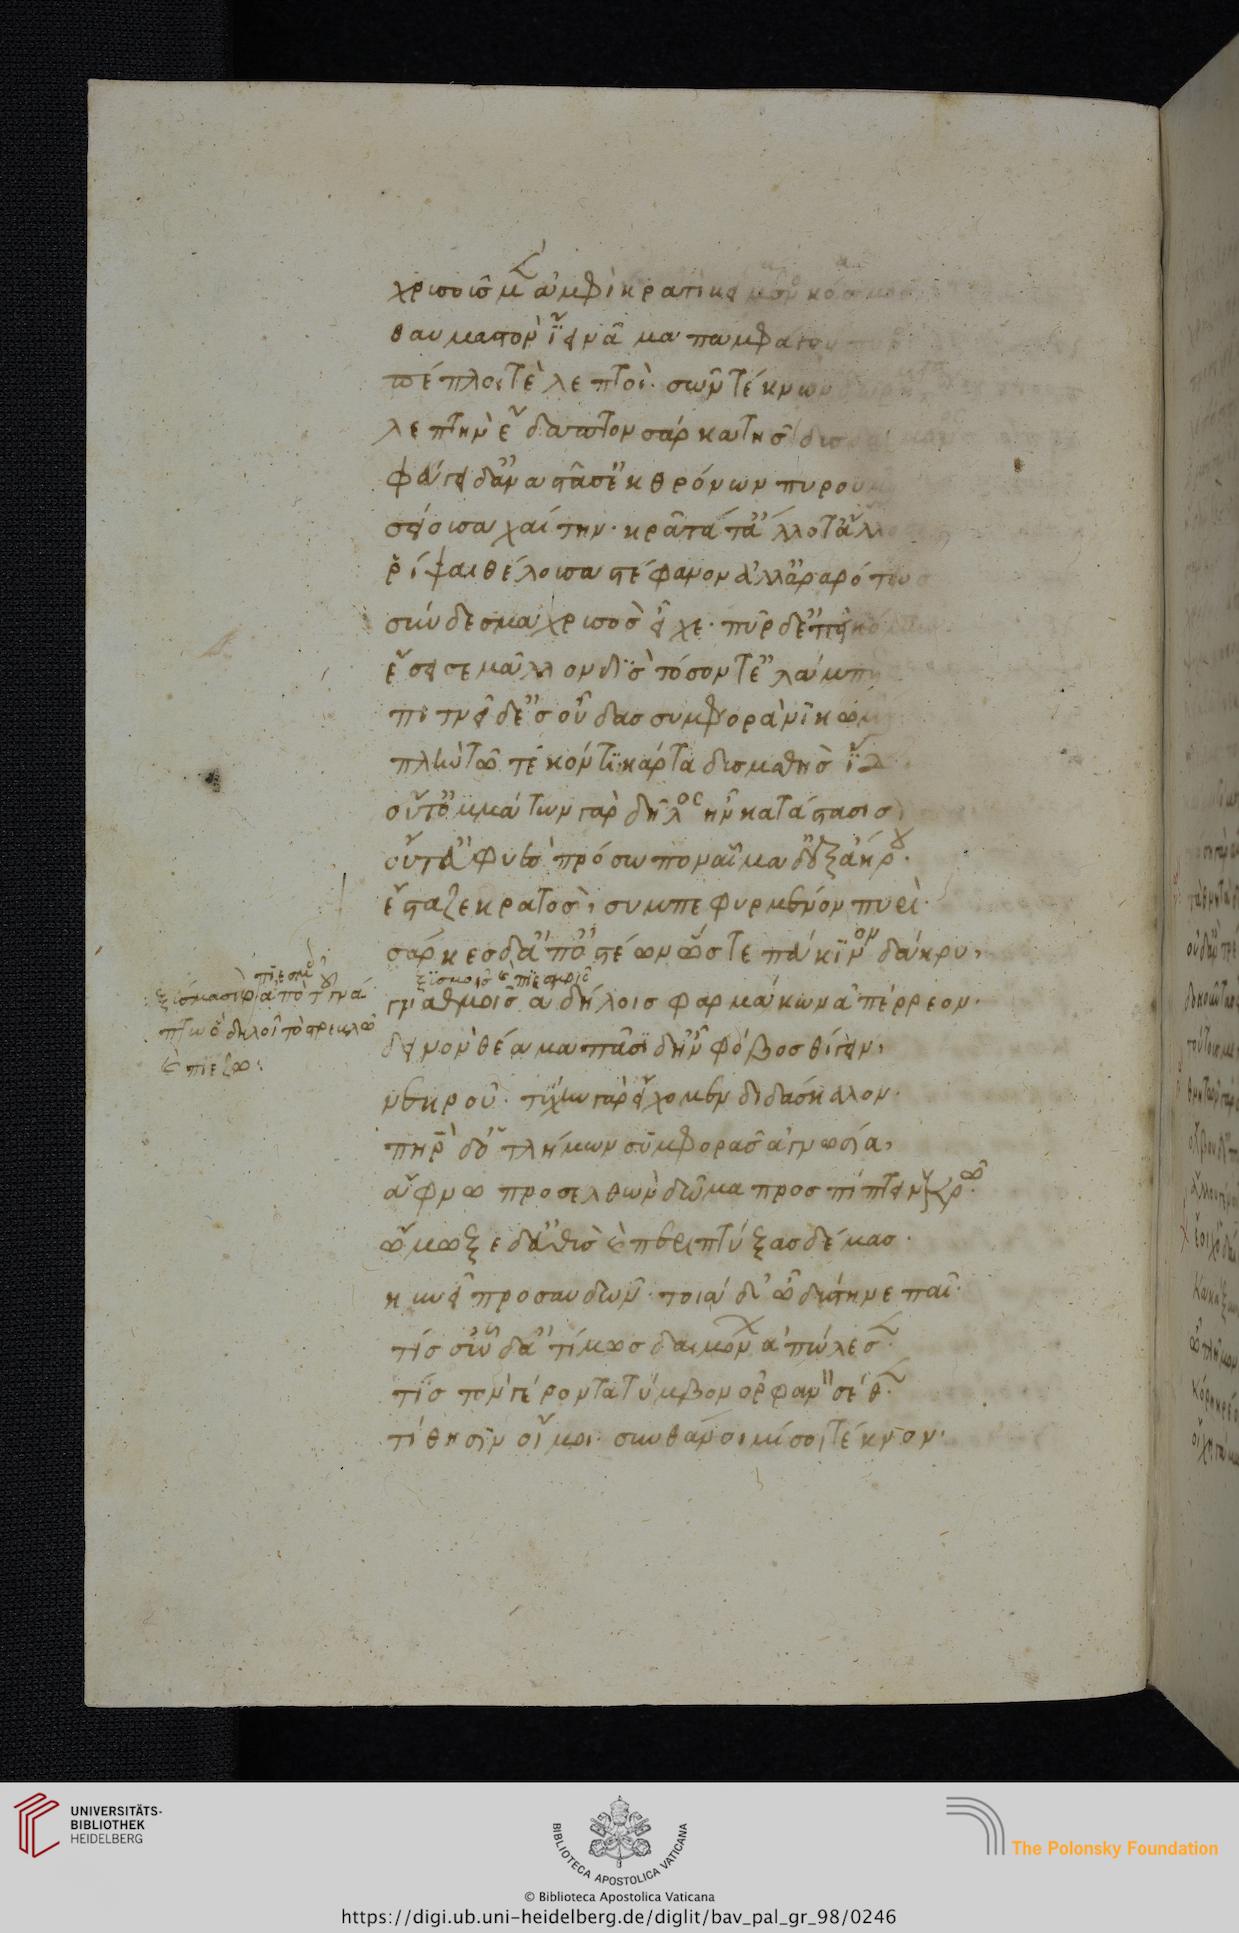 χρυσοῦς μ ἀμφὶ κρατὶ κείμενος κόσμος
θαυμαστὸν ἵει νᾶμα παμφάγου πυρὸς
πέπλοι τὲ λεπτοὶ· σῶν τέκνων
λεπτὴν ἔδαπτον σάρκα τῆς δυσ
φεύγει δ' ἀναστᾶσ' ἐκ θρόνων πυρουμ
σείουσα χαίτην· κρᾶτά τ' ἄλλοτ' ἄλλο
ῥίψαι θέλουσα στέφανον ἀλλ' ἀραρότως
σύνδεσμα χρυσὸς εἶχε· πῦρ δ' ἐπεὶ κόμην
ἔσεισε μᾶλλον δὶς τόσον τ' ἐλάμπε
πιτνεῖ δ' ἐς οὖδας συμφορᾷ νικωμ
πλὴν τῷ τεκόντι κάρτα δυσμαθὴς ἰδ
οὔτ' ὀμμάτων γὰρ δῆλος ἦν κατάστασις
οὔτ' εὐφυὲς πρόσωπον αἷμα δ' ἐξ ἄκρου·
ἔσταζε κρατὸς, συμπεφυρμένον πυρί·
σάρκες δ' ἀπ' ὀστέων ὥστε πεύκινον δάκρυ,
ξισμοῖς καὶ πιεσμοῖς
γναθμοῖς ἀδήλοις φαρμάκων ἀπέρρεον·
δεινὸν θέαμα πᾶσι δ' ἦν φόβος θιγεῖν,
νεκροῦ· τύχην γὰρ εἴχομεν διδάσκαλον·
πηρ δ' ὁ τλήμων συμφορᾶς ἀγνωσία,
ἄφνω προσελθὼν δῶμα προσπίπτει νεκρῷ·
ᾤμωξε δ' εὐθὺς καὶ περιπτύξας δέμας·
κυνεῖ προσαυδῶν· τοιάδ' ὦ δύστηνε παῖ·
τίς σ' ὧδ' ἀτίμως δαιμόνων ἀπώλεσε·
τίς τὸν γέροντα τύμβον ὀρφανὸν σέθεν·
τίθησιν οἴμοι· συνθάνοιμί σοι τέκνον·
πιεσμοῦ
ξίσμασιν ἀπὸ τοῦ γνά
πτω ὃ δηλοῖ τὸ στρεκλῶ
καὶ πιέζω:
UNIVERSITÄTS-
BIBLIOTHEK
HEIDELBERG
BIBLIOTECA APOSTOLICA VATICANA
The Polonsky Foundation
© Biblioteca Apostolica Vaticana
https://digi.ub.uni-heidelberg.de/diglit/bav_pal_gr_98/0246